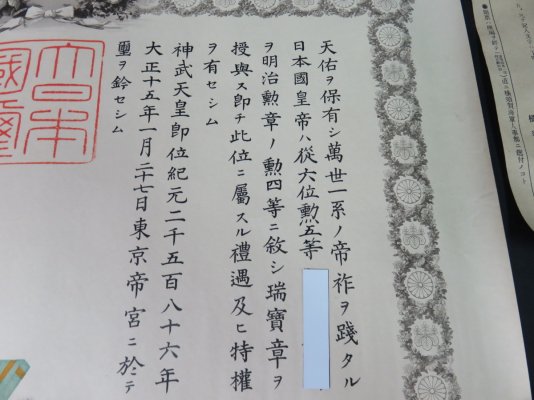 天佑ヲ保有シ萬世一系ノ帝祚ヲ踐タル
日本國皇帝ハ從六位勲五等
ヲ明治勲章ノ勲四等ニ敘シ瑞寶章ヲ
授與ス即チ此位ニ屬スル禮遇及ヒ特權
ヲ有セシム
神武天皇即位紀元二千五百八十六年
大正十五年一月二十七日東京帝宮ニ於テ
璽ヲ鈐セシム
大日本
國璽